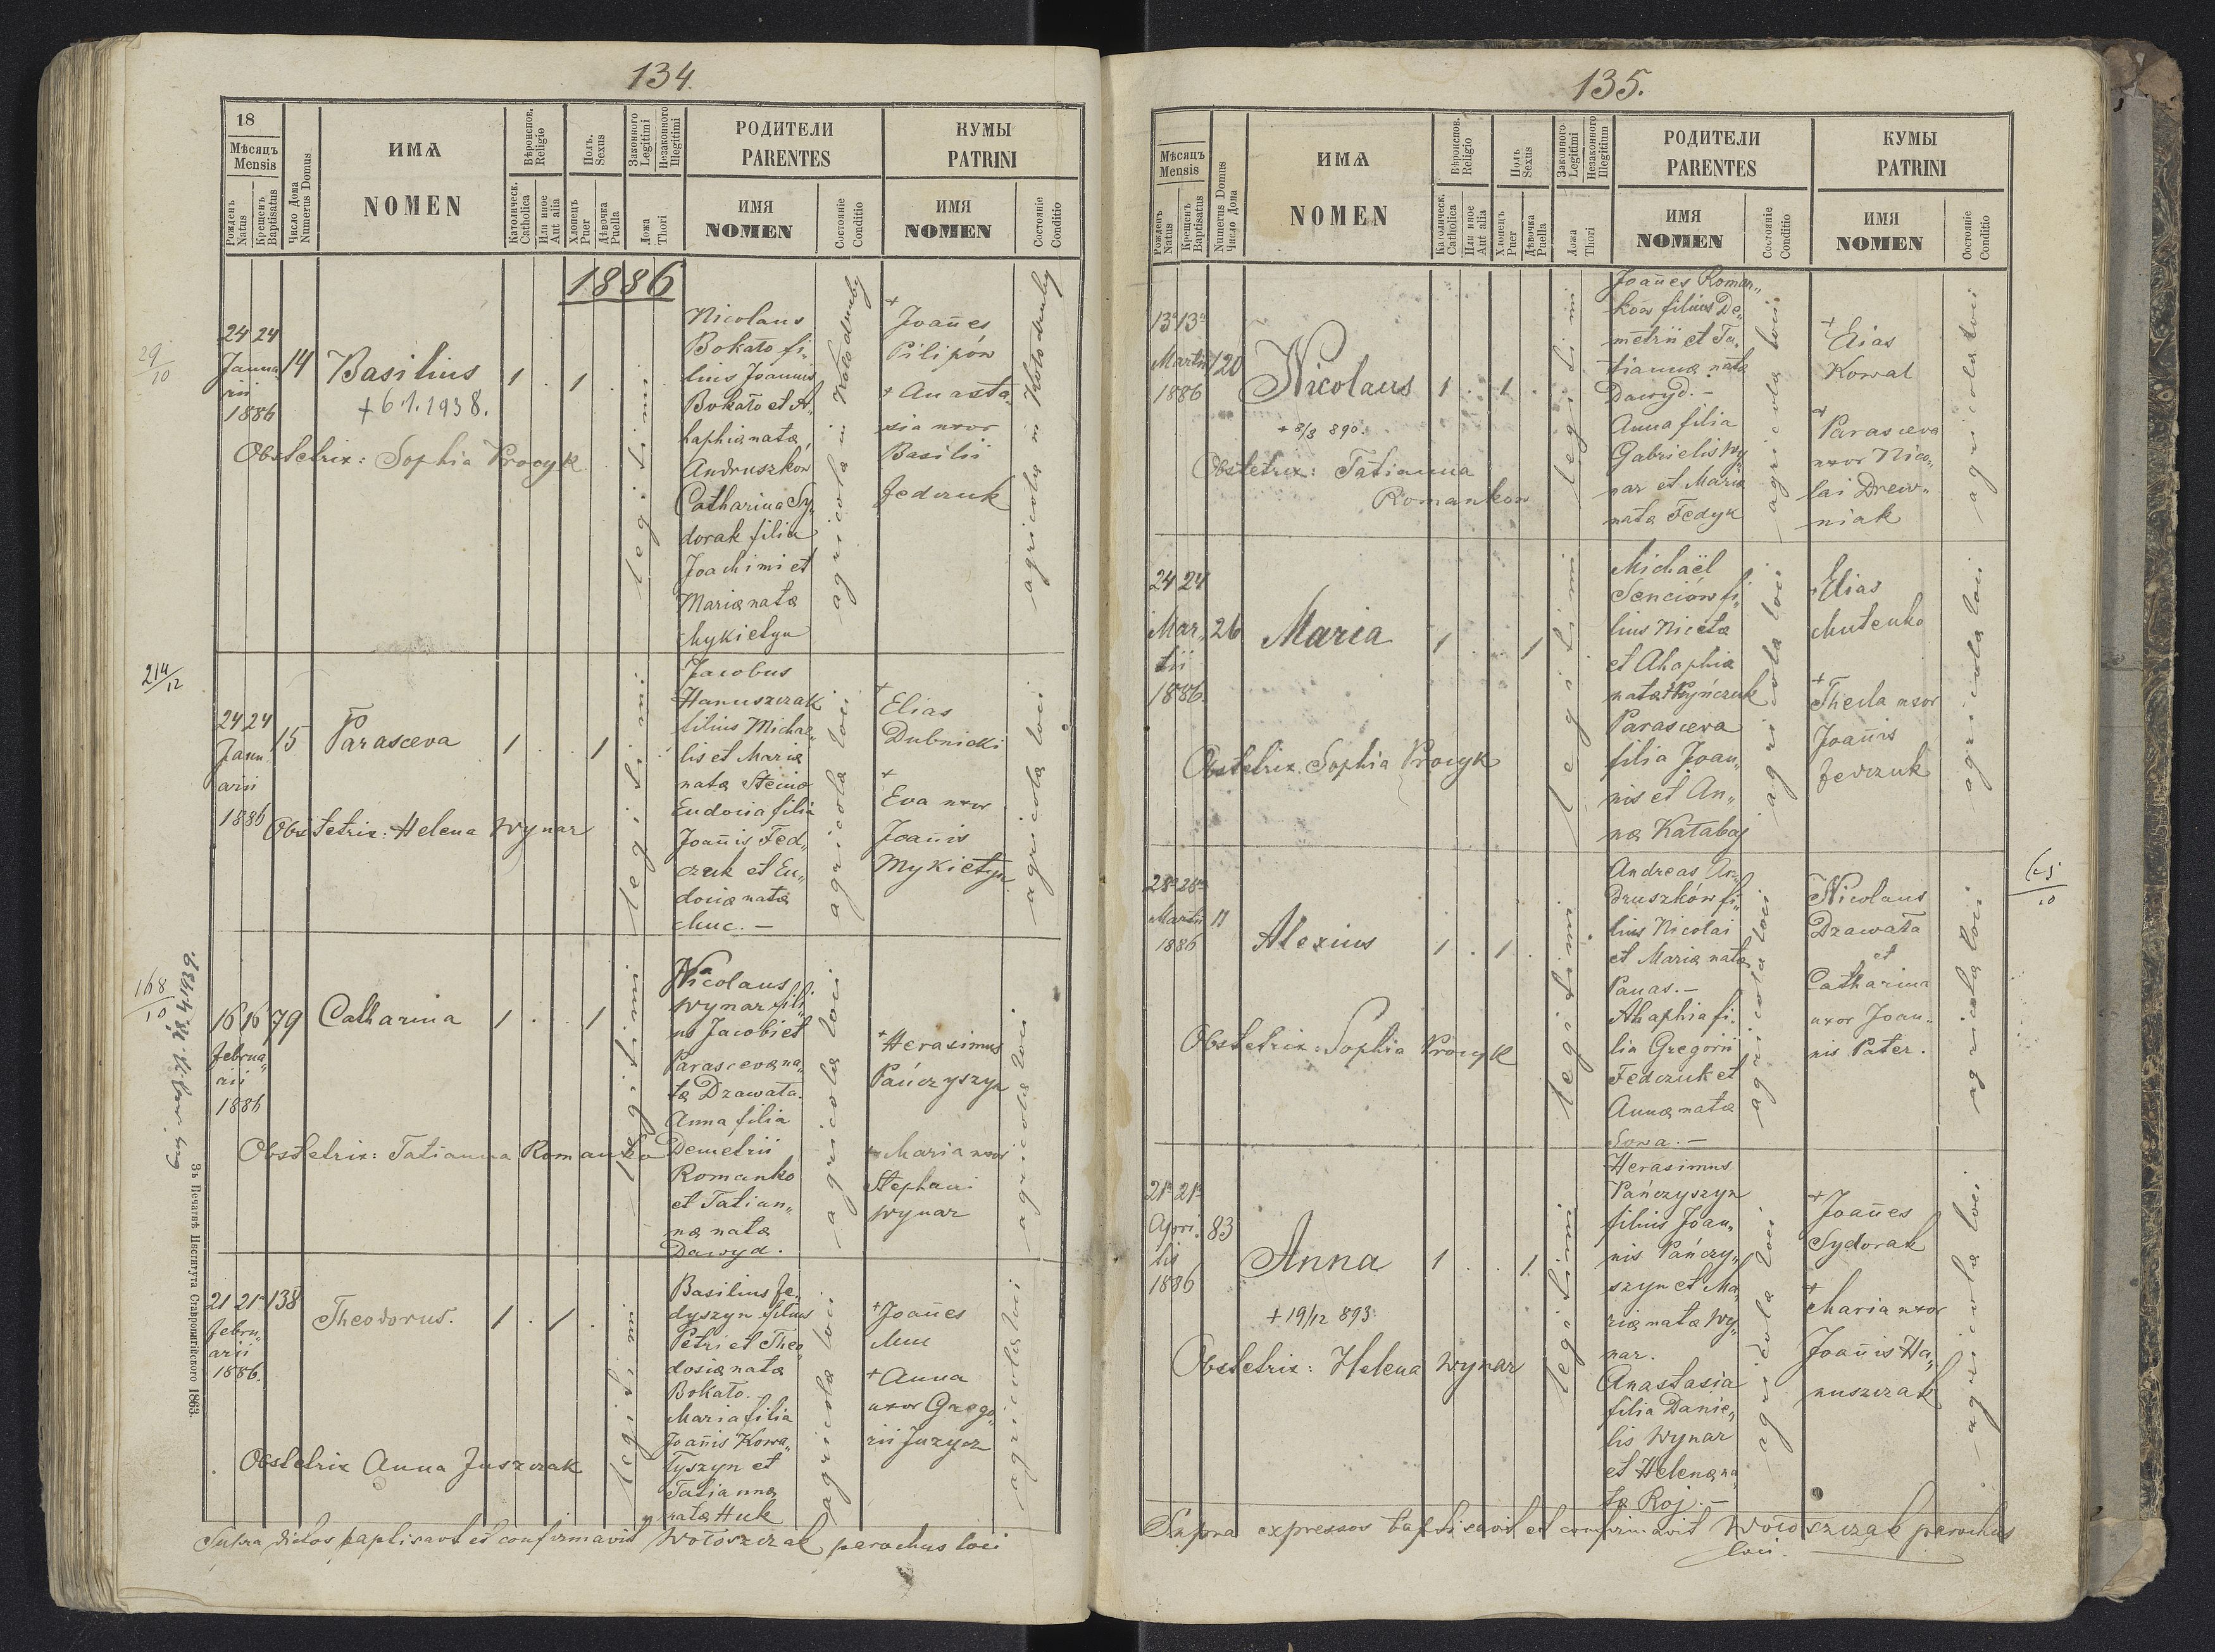 134.
18
Мѣсяцъ
Mensis
Рожденъ
Natus
Крещенъ
Baptisatus
Число Дома
Numerus Domus
ИМѦ
NOMEN
Вѣроиспов.
Religio
Католическ.
Catholica
Или иное
Aut alia
Полъ.
Sexus
Хлопецъ
Puer
Дѣвочка
Puella
Законного
Legitimi
Незаконного
Illegitimi
Ложа
Thori
РОДИТЕЛИ
PARENTES
ИМЯ
NOMEN
Состояніе
Conditio
КУМЫ
PATRINI
ИМЯ
NOMEN
Состояніе
Conditio
1886
29/10
24 24
Janua
rii
1886
14
Basilius
+ 6 1. 1938.
1 . 1 .
Obstetrix: Sophia Procyk
legitimi
Nicolaus
Bokało fi„
lius Joannis
Bokało et A„
haphiæ natæ
Andruszków
Catharina Sy„
dorak filia
Joachimi et
Mariæ natæ
Mykietyn
agricolæ in Kołodruby
+
Joañes
Pilipón
+ Anasta„
sia uxor
Basilii
Fedczuk
agricolæ in Kołodruby
214/12
24 24
Janu
arii
1886
15
Parasceva
1 . . 1
Obstetrix: Helena Wynar
legitimi
Jacobus
Hanuszczak
filius Michae„
lis et Mariæ
natæ Steciuo
Eudocia filia
Joañis Fed„
czuk et Eu„
dociæ natæ
Muc. —
agricolæ loci
+
Elias
Dubnicki
+
Eva uxor
Joañis
Mykietyn
agricolæ loci
168/10
16 16
Februa„
rii
1886
79
Catharina
1 . . 1
Obstetrix: Tatianna Romanko
legitimi
Nicolaus
Wynar fili„
us Jacobi et
Parascevæ na„
tæ Dzawała.
Anna filia
Demetrii
Romanko
et Tatian„
næ natæ
Dawyd.
agricolæ loci
+ Herasimus
Pańczyszyn
+ Maria uxor
Stephani
Wynar
agricolæ loci
Зъ Печатнѣ Института Ставропигійского 1863.
21 21
Febru„
arii
1886.
138
Theodorus.
1 . 1 .
Obstetrix Anna Juszczak
legitimi
Basilius Fe„
dyszyn filius
Petri et Theo„
dosiæ natæ
Bokało.
Maria filia
Joañis Kowa„
łyszyn et
Tatiannæ
natæ Huk
agricolæ loci
+ Joañes
Muc
+ Anna
uxor Grego„
rii Juzycz
agricolæ loci
Supra dictos baptisavit et confirmavit Wołoszczak parochus loci
135.
Мѣсяцъ
Mensis
Рожденъ
Natus
Крещенъ
Baptisatus
Numerus Domus
Число Дома
ИМѦ
NOMEN
Вѣроиспов.
Religio
Католическ.
Catholica
Или иное
Aut alia
Полъ
Sexus
Хлопецъ
Puer
Дѣвочка
Puella
Законного
Legitimi
Незаконного
Illegitimi
Ложа
Thori
РОДИТЕЛИ
PARENTES
ИМЯ
NOMEN
Состояніе
Conditio
КУМЫ
PATRINI
ИМЯ
NOMEN
Состояніе
Conditio
13 13
Martii
1886
120
Nicolaus
+ 8/8 890.
1 . 1 .
Obstetrix: Tatianna
Romanków
legitimi
Joañes Roman„
ków filius De„
metrii et Ta„
tiannæ natæ
Dawyd. —
Anna filia
Gabrielis Wy„
nar et Mariæ
natæ Fedyk
agricolæ loci
+
Elias
Kowal
+
Parasceva
uxor Nico„
lai Drew„
niak
agricolæ loci
24 24
Mar„
tii
1886.
26
Maria
1 . . 1
Obstetrix Sophia Procyk
legitimi
Michaël
Senciów fi„
lius Nicetæ
et Ahaphiæ
Parasceva
filia Joan„
nis et An„
næ Kałabaj
agricolæ loci
Elias
Mutenko
+
Thecla uxor
Joañis
Fedczuk
agricolæ loci
28 28
Martii
1886
11
Alexius
1 . 1 .
Obstetrix: Sophia Procyk
legitimi
Andreas An„
druszków fi„
lius Nicolai
et Mariæ natæ
Panas. —
Ahaphia fi„
lia Gregorii
Fedczuk et
Annæ natæ
Sowa. —
agricolæ loci
Nicolaus
Dzawała
et
Catharina
uxor Joan„
nis Pater.
agricolæ loci
21 21
Apri„
lis
1886
83
Anna
+ 19/12 893.
1 . . 1
Obstetrix: Helena Wynar
legitimi
Herasimus
Pańczyszyn
filius Joan„
nis Pańczy„
szyn et Ma„
riæ natæ Wy„
nar.
Anastasia
filia Danie„
lis Wynar
et Helenæ na„
tæ Roj. —
agricolæ loci
+
Joañes
Sydorak
+
Maria uxor
Joañis Ha„
nuszczak
agricolæ loci
Supra expressos baptisavit et confirmavit Wołoszczak parochus
loci.